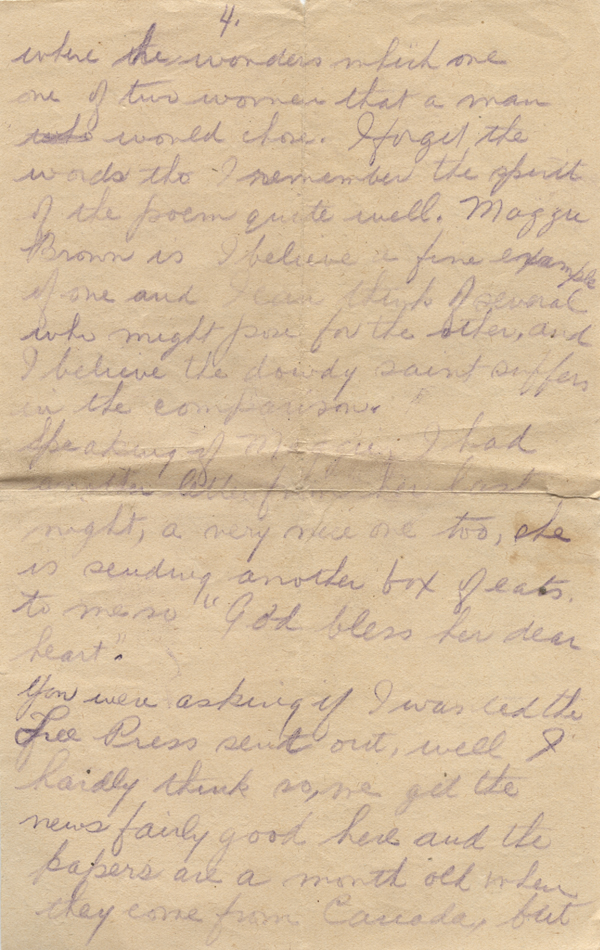 4.
where he wonders which one
one of two women that a man
who would chose. I forget the
words tho I remember the spirit
of the poem quite well. Maggie
Brown is I believe a fine example
of one and I can think of several
who might pose for the other, and
I believe the dowdy saint suffers
in the comparison."
Speaking of Maggie, I had
another letter from her last
night, a very nice one too, she
is sending another box of eats.
to me so "God bless her dear
heart".
You were asking if I wanted the
Free Press sent out, well I
hardly think so, we get the
news fairly good here and the
papers are a month old when
they come from Canada, but